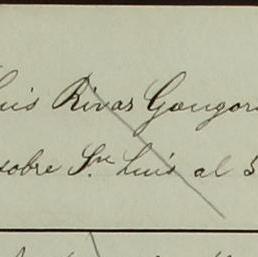 Luis Rivas Gongora
sobre Sn. Luis al 5